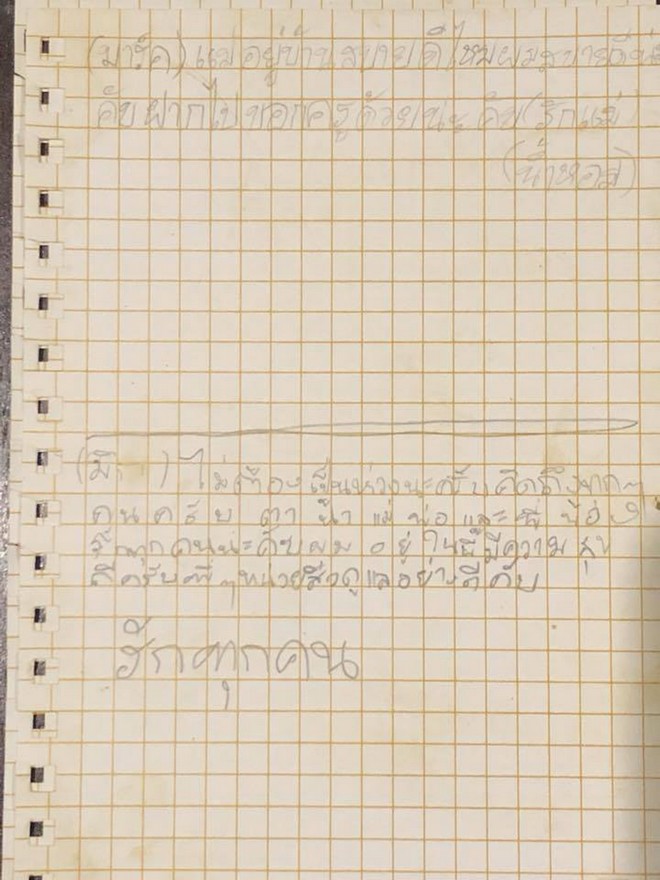 (มาร์ค) แม่อยู่บ้านสบายดีไหมผมสบายดี
คับฝากไปบอกครูด้วยนะคับ(รักแม่)
(น้ำหอม)
(มิ ) ไม่ต้องเป็นห่วงนะครับคิดถึงทุกๆ
คนครับ ตา น้า แม่ พ่อ และ พี่ น้อง
รักทุกคนนะคับผม อยู่ ในนี้มีความ สุข
ดีครับพี่ๆหน่วยซีลดูแลอย่างดีคับ
รักทุกคน